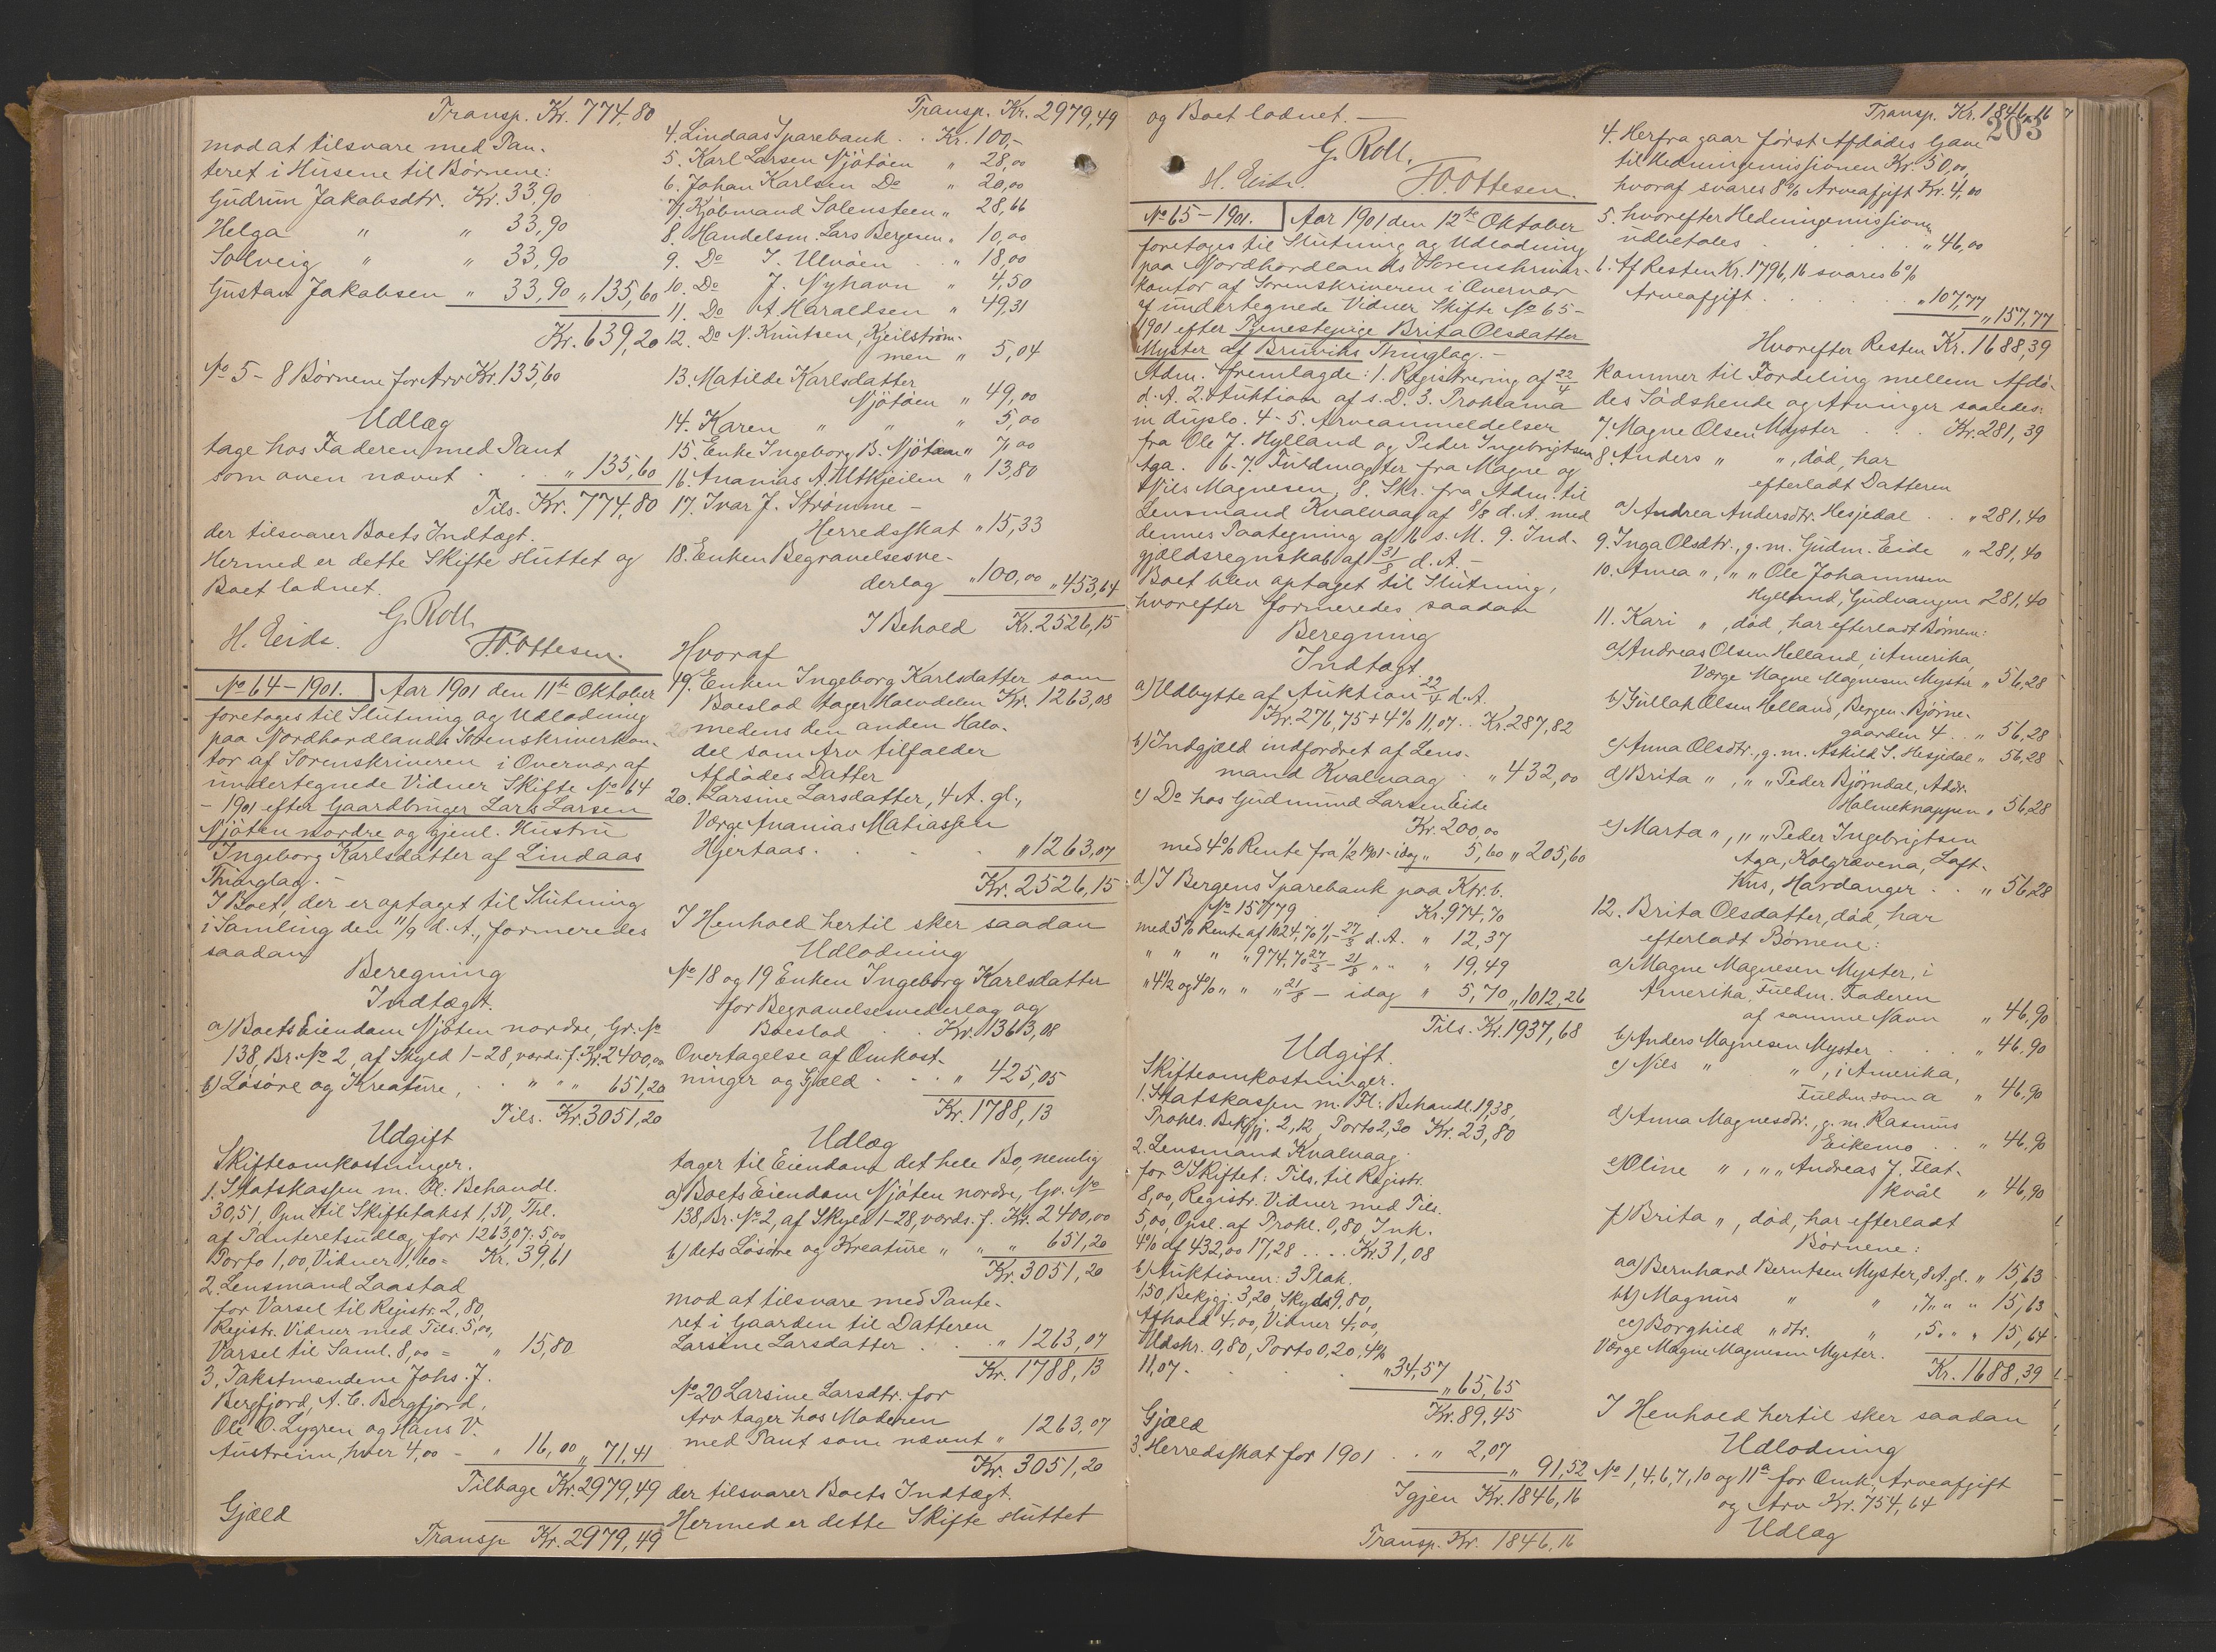 Transp. Kr. 774,80
mod at tilsvare med Pan-
teret i Husene til Börnene:
Gudrun Jakobsdtr. Kr. 33,90
Helga " " 33,90
Solveig " " 33,90
Gustav Jakobsen " 33,90 " 135,60
Kr. 639,20
No 5-8 Börnene for Arv Kr. 135,60
Udlæg
tage hos Faderen med Pant
som oven nævnt . . " 135,60
Tils. Kr. 774,80
der tilsvarer Boets Indtægt.
Hermed er dette Skifte sluttet og
Boet lodnet.
G. Roll.
H. Eide. J.O. Ottesen.
No 64-1901. Aar 1901 den 11te Oktober
foretoges til Slutning og Udlodning
paa Nordhordlands Sorenskriverkon-
tor af Sorenskriveren i Overvær af
undertegnede Vidner Skifte No 64
- 1901 efter Gaardbruger Lars Larsen
Njöten nordre og gjenl. Hustru
Ingeborg Karlsdatter af Lindaas
Thinglag. -
I Boet, der er optaget til Slutning
i Samling den 11/9 d. A., formeredes
saadan
Beregning
Indtægt.
a) Boets Eiendom Njöten nordre, Gr. No
138, Br. No 2, af Skyld 1-28, værds. f. Kr. 2400,00
b) Lösöre og Kreature, . . " " " 651,20
Tils. Kr. 3051,20
Udgift
Skifteomkostninger.
1. Statskassen m. Fl: Behandl.
30,51, Opn. til Skiftetakst 1,50, Thl.
af Panteretsudlæg for 1263,07: 5,00
Porto 1,00, Vidner 1,60 = Kr. 39,61
2. Lensmand Laastad
for Varsel til Registr. 2,80,
Registr. Vidner med Tils. 5,00,
Varsel til Saml. 8,00 = " 15,80
3, Takstmændene Johs. J.
Bergfjord, A. C. Bergfjord,
Ole O. Lygren og Hans V.
Austreim, hver 4,00 - " 16,00 " 71,41
Tilbage Kr. 2979,49
Gjæld
Transp. Kr. 2979,49
Transp. Kr. 2979,49
4. Lindaas Sparebank . . Kr. 100,-
5. Karl Larsen Njötöen " 28,00
6. Johan Karlsen Do " 20,00
7. Kjöbmand Solensteen " 28,66
8. Handelsm. Lars Bergesen " 10,00
9. Do I. Ulvöen . . " 18,00
10. Do J. Nyhavn " 4,50
11. Do A. Haraldsen " 49,31
12. Do N. Knutsen, Kjeilström-
men " 5,04
13. Matilde Karlsdatter
Njötöen " 49,00
14. Karen " " " 5,00
15. Enke Ingeborg B. Njötöen " 7,00
16. Ananias A. Utkjeilen " 13,80
17. Ivar J. Strömme -
Herredsskat " 15,33
18. Enken Begravelsesve-
derlag " 100,00 " 453,64
I Behold Kr. 2526,15
Hvoraf
19. Enken Ingeborg Karlsdatter som
Boeslod tager Halvdelen Kr. 1263,08
medens den anden Halv-
del som Arv tilfalder
Afdödes Datter
20. Larsine Larsdatter, 4 A. gl.,
Værge Ananias Matiassen
Hjertaas . . . . " 1263,07
Kr. 2526,15
I Henhold hertil sker saadan
Udlodning
No 18 og 19 Enken Ingeborg Karlsdatter
for Begravelsesvederlag og
Boeslod . . Kr. 1363,08
Overtagelse af Omkost-
ninger og Gjæld . . . " 425,05
Kr. 1788,13
Udlæg
tager til Eiendom det hele Bo, nemlig
a) Boets Eiendom Njöten nordre, Gr. No
138, Br. No 2, af Skyld 1-28, værds. f. Kr. 2400,00
b) dets Lösöre og Kreature " " " 651,20
Kr. 3051,20
mod at tilsvare med Pante-
ret i Gaarden til Datteren
Larsine Larsdatter . . . " 1263,07
Kr. 1788,13
No 20 Larsine Larsdtr. for
Arv tager hos Moderen
med Pant som nævnt " 1263,07
Kr. 3051,20
der tilsvarer Boets Indtægt.
Hermed er dette Skifte sluttet
og Boet lodnet. -
G. Roll.
H. Eide. J.O. Ottesen.
No 65-1901. Aar 1901 den 12te Oktober
foretoges til Slutning og Udlodning
paa Nordhordlands Sorenskriver-
kontor af Sorenskriveren i Overvær
af undertegnede Vidner Skifte No 65-
1901 efter Tjenestepige Brita Olsdatter
Myster af Bruviks Thinglag. -
Adm. fremlagde: 1. Registrering af 22/4
d. A. 2. Auktion af s. D. 3. Proklama
in duplo. 4-5. Arveanmeldelser
fra Ole J. Hylland og Peder Ingebrigtsen
Aga. 6-7. Fuldmagter fra Magne og
Nils Magnesen, 8. Skr. fra Adm. til
Lensmand Kvalvaag af 8/8 d. A. med
dennes Paategning af 16 s. M. 9. Ind-
gjældsregnskab af 31/8 d. A. -
Boet blev optaget til Slutning,
hvorefter formeredes saadan
Beregning
Indtægt.
a) Udbytte af Auktion 22/4 d. A.
Kr. 276,75 + 4% 11,07 . . Kr. 287,82
b) Indgjæld indfordret af Lens-
mand Kvalvaag . " 432,00
c) Do hos Gudmund Larsen Eide
Kr. 200,00
med 4% Rente fra 1/2 1901 - idag " 5,60 " 205,60
d) I Bergens Sparebank paa Ktr. b.
No 150179 . . Kr. 974,70
med 5% Rente af 1024,70 1/1 - 27/3 d. A. " 12,37
" " " " 974,70 27/3 - 21/8 " " " 19,49
" 4 1/2 og 4% " " " 21/8 - idag " 5,70 " 1012,26
Tils. Kr. 1937,68
Udgift.
Skifteomkostninger.
1. Statskassen m. Fl: Behandl. 19,38,
Prokls. Bekjgj. 2,12 Porto 2,30 Kr. 23,80
2. Lensmand Kvalvaag
for a) Skiftet: Tils. til Registr.
8,00, Registr. Vidner med Tils.
5,00, Opsl. af Prokl. 0,80 Ink.
4% af 432,00 17,28 . . . . Kr. 31,08
b) Auktionen: 3 Plak.
1,50 Bekjgj. 3,20, Skyds 9,80,
Afhold 4,00, Vidner 4,00,
Udskr. 0,80, Porto 0,20, 4%
11,07 . . . . . " 34,57
" 65,65
Kr. 89,45
Gjæld
3. Herredsskat for 1901 . . " 2,07
" 91,52
Igjen Kr. 1846,16
Transp. Kr. 1846,16
Transp. Kr. 1846,16
203
4. Herfra gaar først Afdödes Gave
til Hedningemissionen Kr. 50,00,
hvoraf svares 8% Arveafgift Kr. 4,00
5. hvorefter Hedningemissionen
udbetales . . . . . " 46,00
6. Af Resten Kr. 1796,16 svares 6%
Arveafgift . . . . . " 107,77
" 157,77
Hvorefter Resten Kr. 1688,39
kommer til Fordeling mellem Afdö-
des Södskende og Arvinger saaledes:
7. Magne Olsen Myster . . . Kr. 281,39
8. Anders " " , död, har
efterladt Datteren
a) Andrea Andersdtr. Hesjedal . . " 281,40
9. Inga Olsdtr., g. m. Gudm. Eide " 281,40
10. Anna " , " " Ole Johannesen
Hylland, Gudvangen " 281,40
11. Kari " , död, har efterladt Börnene:
a) Andreas Olsen Helland, i Amerika,
Værge Magne Magnesen Myster " 56,28
b) Gullak Olsen Helland, Bergen. Björne-
gaarden 4 . . " 56,28
c) Anna Olsdtr., g. m. Askild S. Hesjedal " 56,28
d) Brita " , " " Peder Björndal, Addr.
Holmeknappen " 56,28
e) Marta " , " " Peder Ingebrigtsen
Aga, Kolgravena, Loft-
hus, Hardanger . . " 56,28
12. Brita Olsdatter, död, har
efterladt Börnene:
a) Magne Magnesen Myster, i
Amerika, Fuldm. Faderen
af samme Navn " 46,90
b) Anders Magnesen Myster . . . " 46,90
c) Nils " " , i Amerika,
Fuldm. som a " 46,90
d) Anna Magnesdtr., g. m. Rasmus
Eikemo . . " 46,90
e) Oline " , " " Andreas J. Flat-
kvål " 46,90
f) Brita " , död, har efterladt
Börnene:
aa) Bernhard Berntsen Myster, 8 A. gl. " 15,63
bb) Magnus " " , 7 " " " 15,63
cc) Borghild " dtr. " , 5 " " " 15,64
Værge Magne Magnesen Myster.
Kr. 1688,39
I Henhold hertil sker saadan
Udlodning
No 1, 4, 6, 7, 10 og 11a for Omk., Arveafgift
og Arv Kr. 754,64
Udlæg